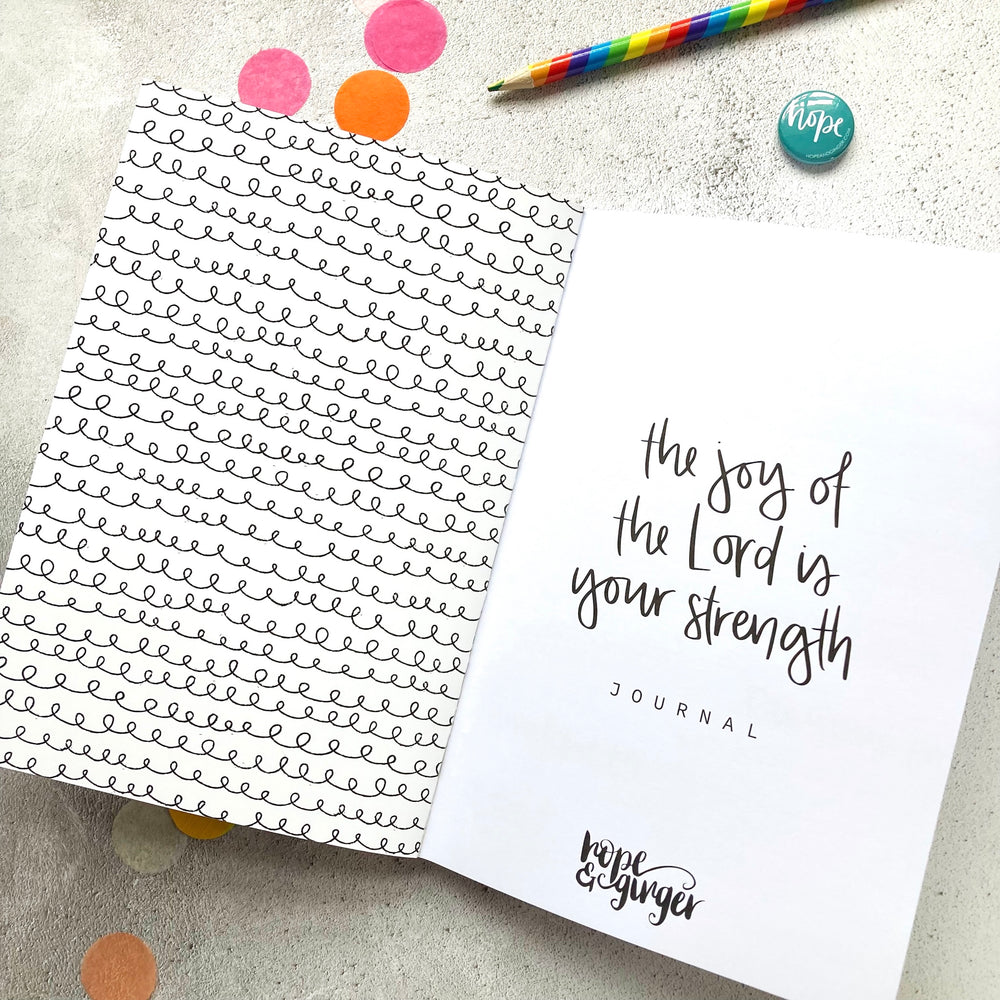 hope
HOPEANDGINGER.COM
the joy of
the Lord is
your strength
JOURNAL
hope
&ginger